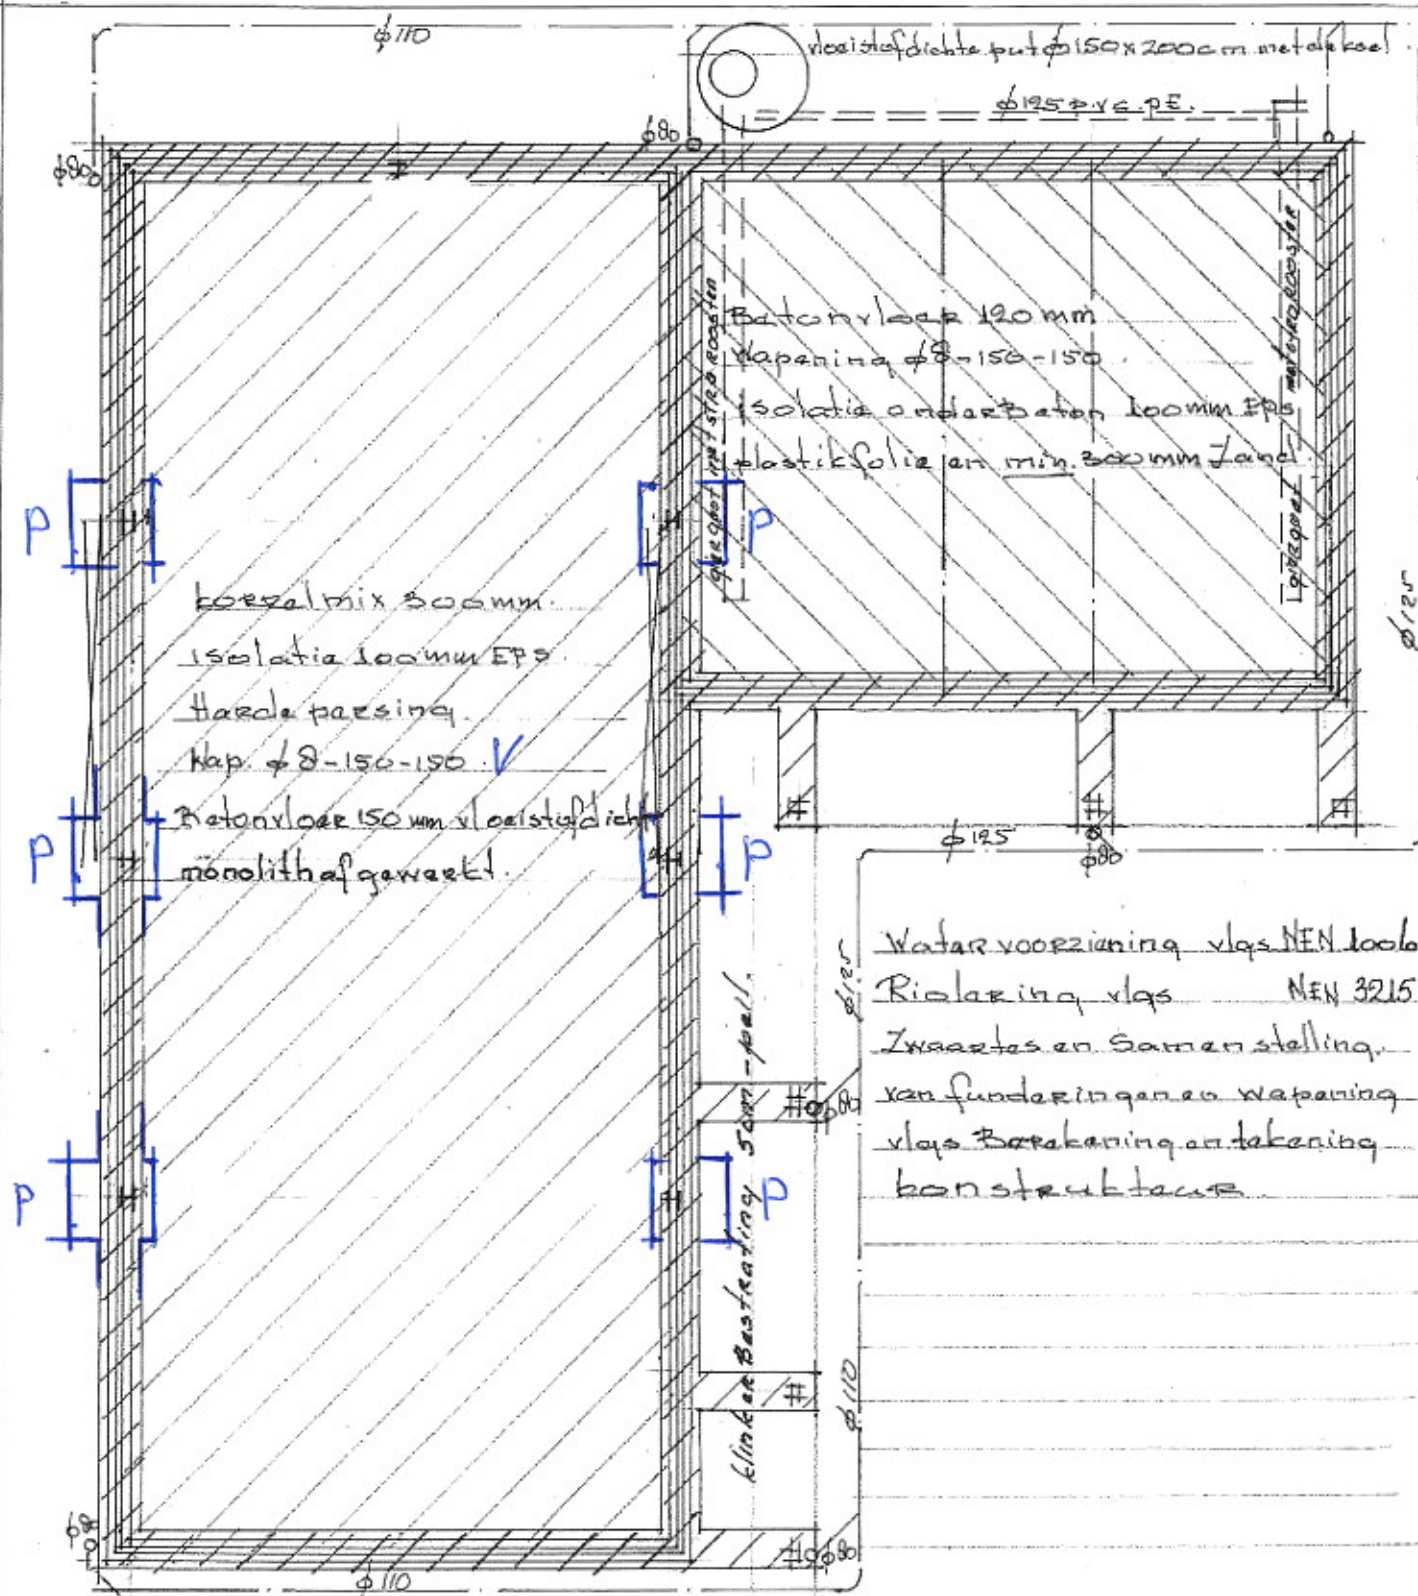 ϕ110
vloeistofdichte put ϕ150x200cm met deksel
ϕ125 p.v.c. p.E.
ϕ80
ϕ80
Betonvloer 120 mm
Wapening ϕ8-150-150
isolatie onder Beton 100mm EPS
plastikfolie en min. 300mm Zand.
giergoot met STRO ROOSTER
giergoot met GYRO ROOSTER
P
P
ϕ125
korrelmix 300mm.
isolatie 100mm EPS.
Harde persing.
Wap. ϕ8-150-150. V
Betonvloer 150 mm vloeistofdicht
monolith afgewerkt.
P
P
ϕ125
ϕ80
Water voorziening vlgs NEN 1006
Riolering vlgs NEN 3215
Zwaartes en Samenstelling.
van funderingen en wapening
vlgs Berekening en tekening
konstrukteur.
ϕ125
ϕ80
P
P
klinker Bestrating 5cm-peil.
ϕ110
ϕ80
ϕ80
ϕ110